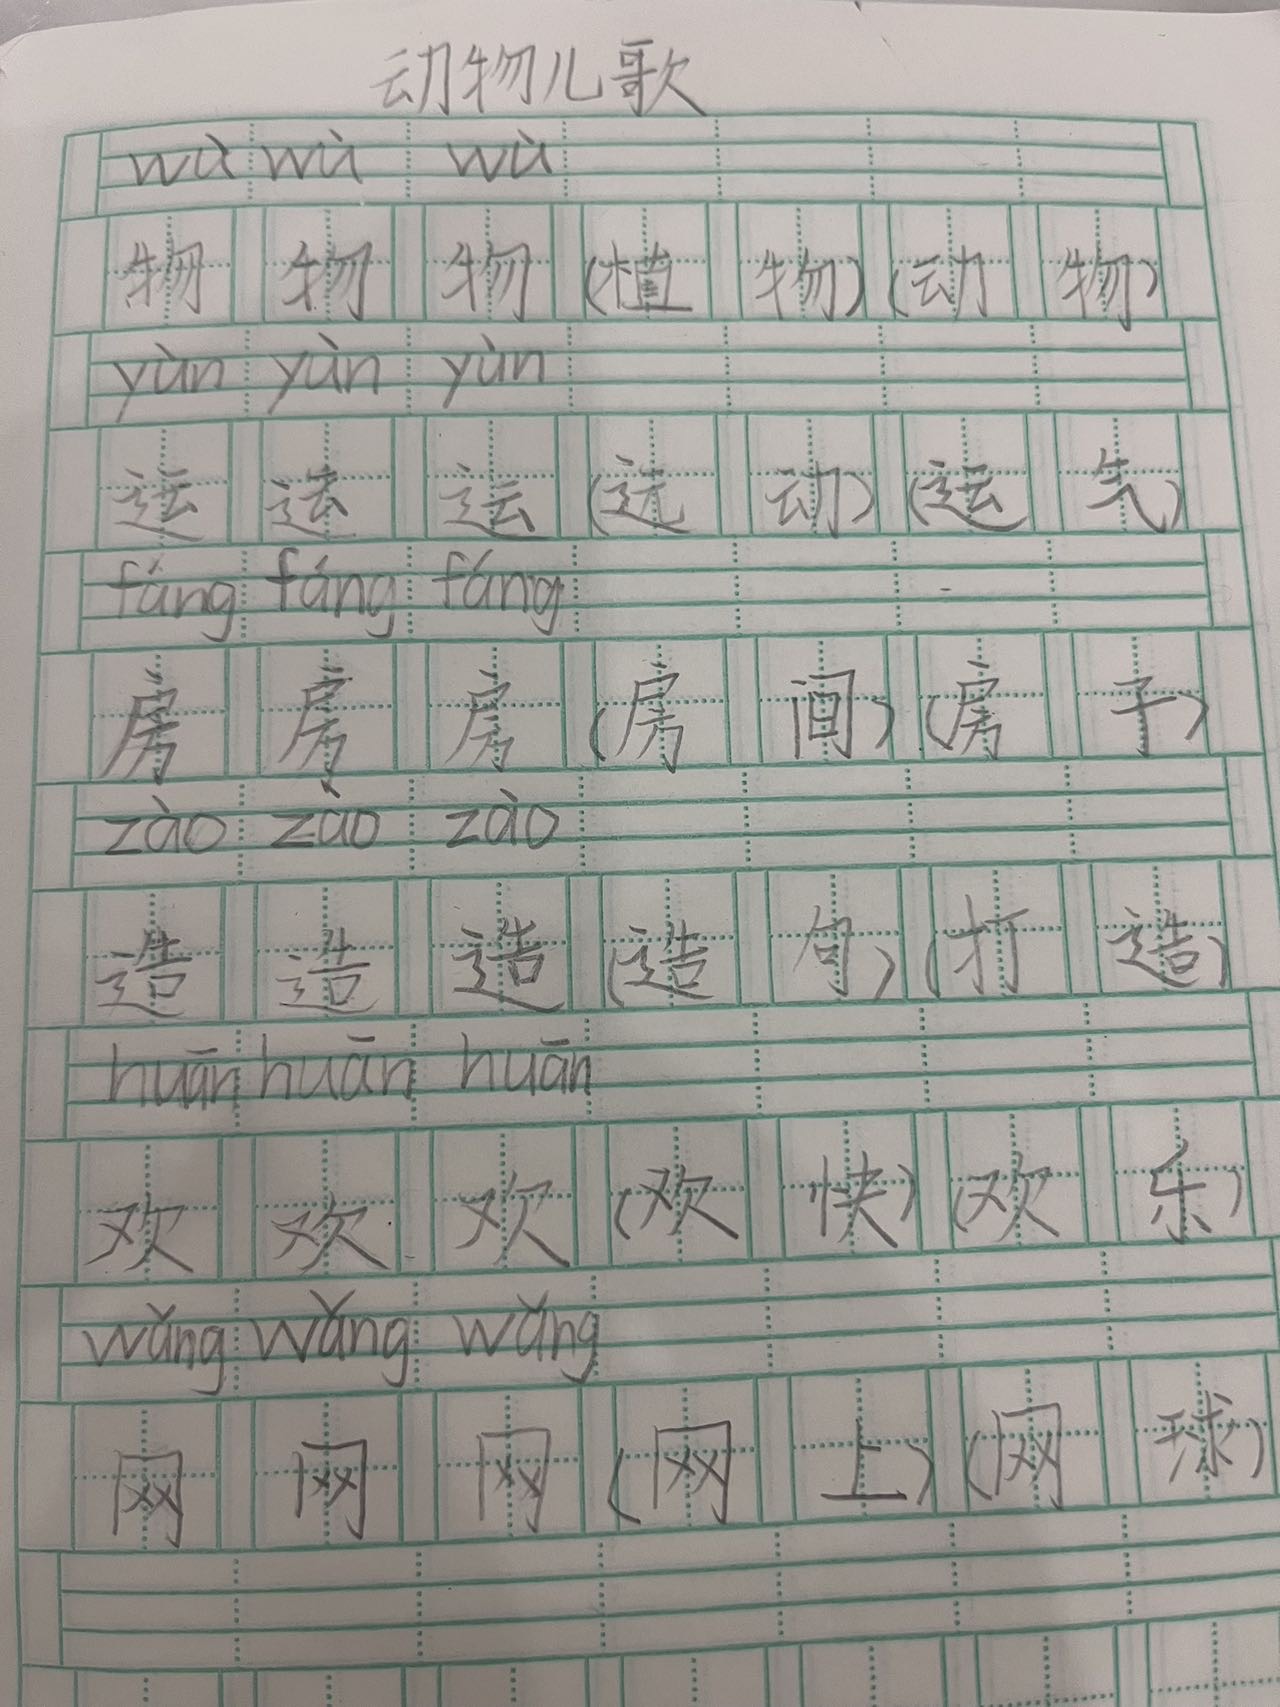 动物儿歌
wù wù wù
物 物 物 (植 物) (动 物)
yùn yùn yùn
运 运 运 (远 动) (运 气)
fáng fáng fáng
房 房 房 (房 间) (房 子)
zào zào zào
造 造 造 (造 句) (打 造)
huān huān huān
欢 欢 欢 (欢 快) (欢 乐)
wǎng wǎng wǎng
网 网 网 (网 上) (网 球)